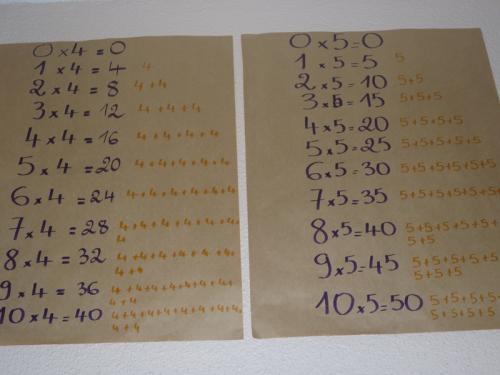 0 × 4 = 0
1 × 4 = 4 4
2 × 4 = 8 4 + 4
3 × 4 = 12 4 + 4 + 4
4 × 4 = 16 4 + 4 + 4 + 4
5 × 4 = 20 4 + 4 + 4 + 4 + 4
6 × 4 = 24 4 + 4 + 4 + 4 + 4 + 4
7 × 4 = 28 4 + 4 + 4 + 4 + 4 + 4 +
4
8 × 4 = 32 4 + 4 + 4 + 4 + 4 + 4 +
4 + 4
9 × 4 = 36 4 + 4 + 4 + 4 + 4 + 4 + 4 +
4 + 4
10 × 4 = 40 4 + 4 + 4 + 4 + 4 + 4 + 4 + 4 +
4 + 4
0 × 5 = 0
1 × 5 = 5 5
2 × 5 = 10 5 + 5
3 × 5 = 15 5 + 5 + 5
4 × 5 = 20 5 + 5 + 5 + 5
5 × 5 = 25 5 + 5 + 5 + 5 + 5
6 × 5 = 30 5 + 5 + 5 + 5 + 5 + 5
7 × 5 = 35 5 + 5 + 5 + 5 + 5 + 5
8 × 5 = 40 5 + 5 + 5 + 5 + 5 +
5 + 5
9 × 5 = 45 5 + 5 + 5 + 5 + 5
5 + 5 + 5
10 × 5 = 50 5 + 5 + 5 + 5
5 + 5 + 5 + 5